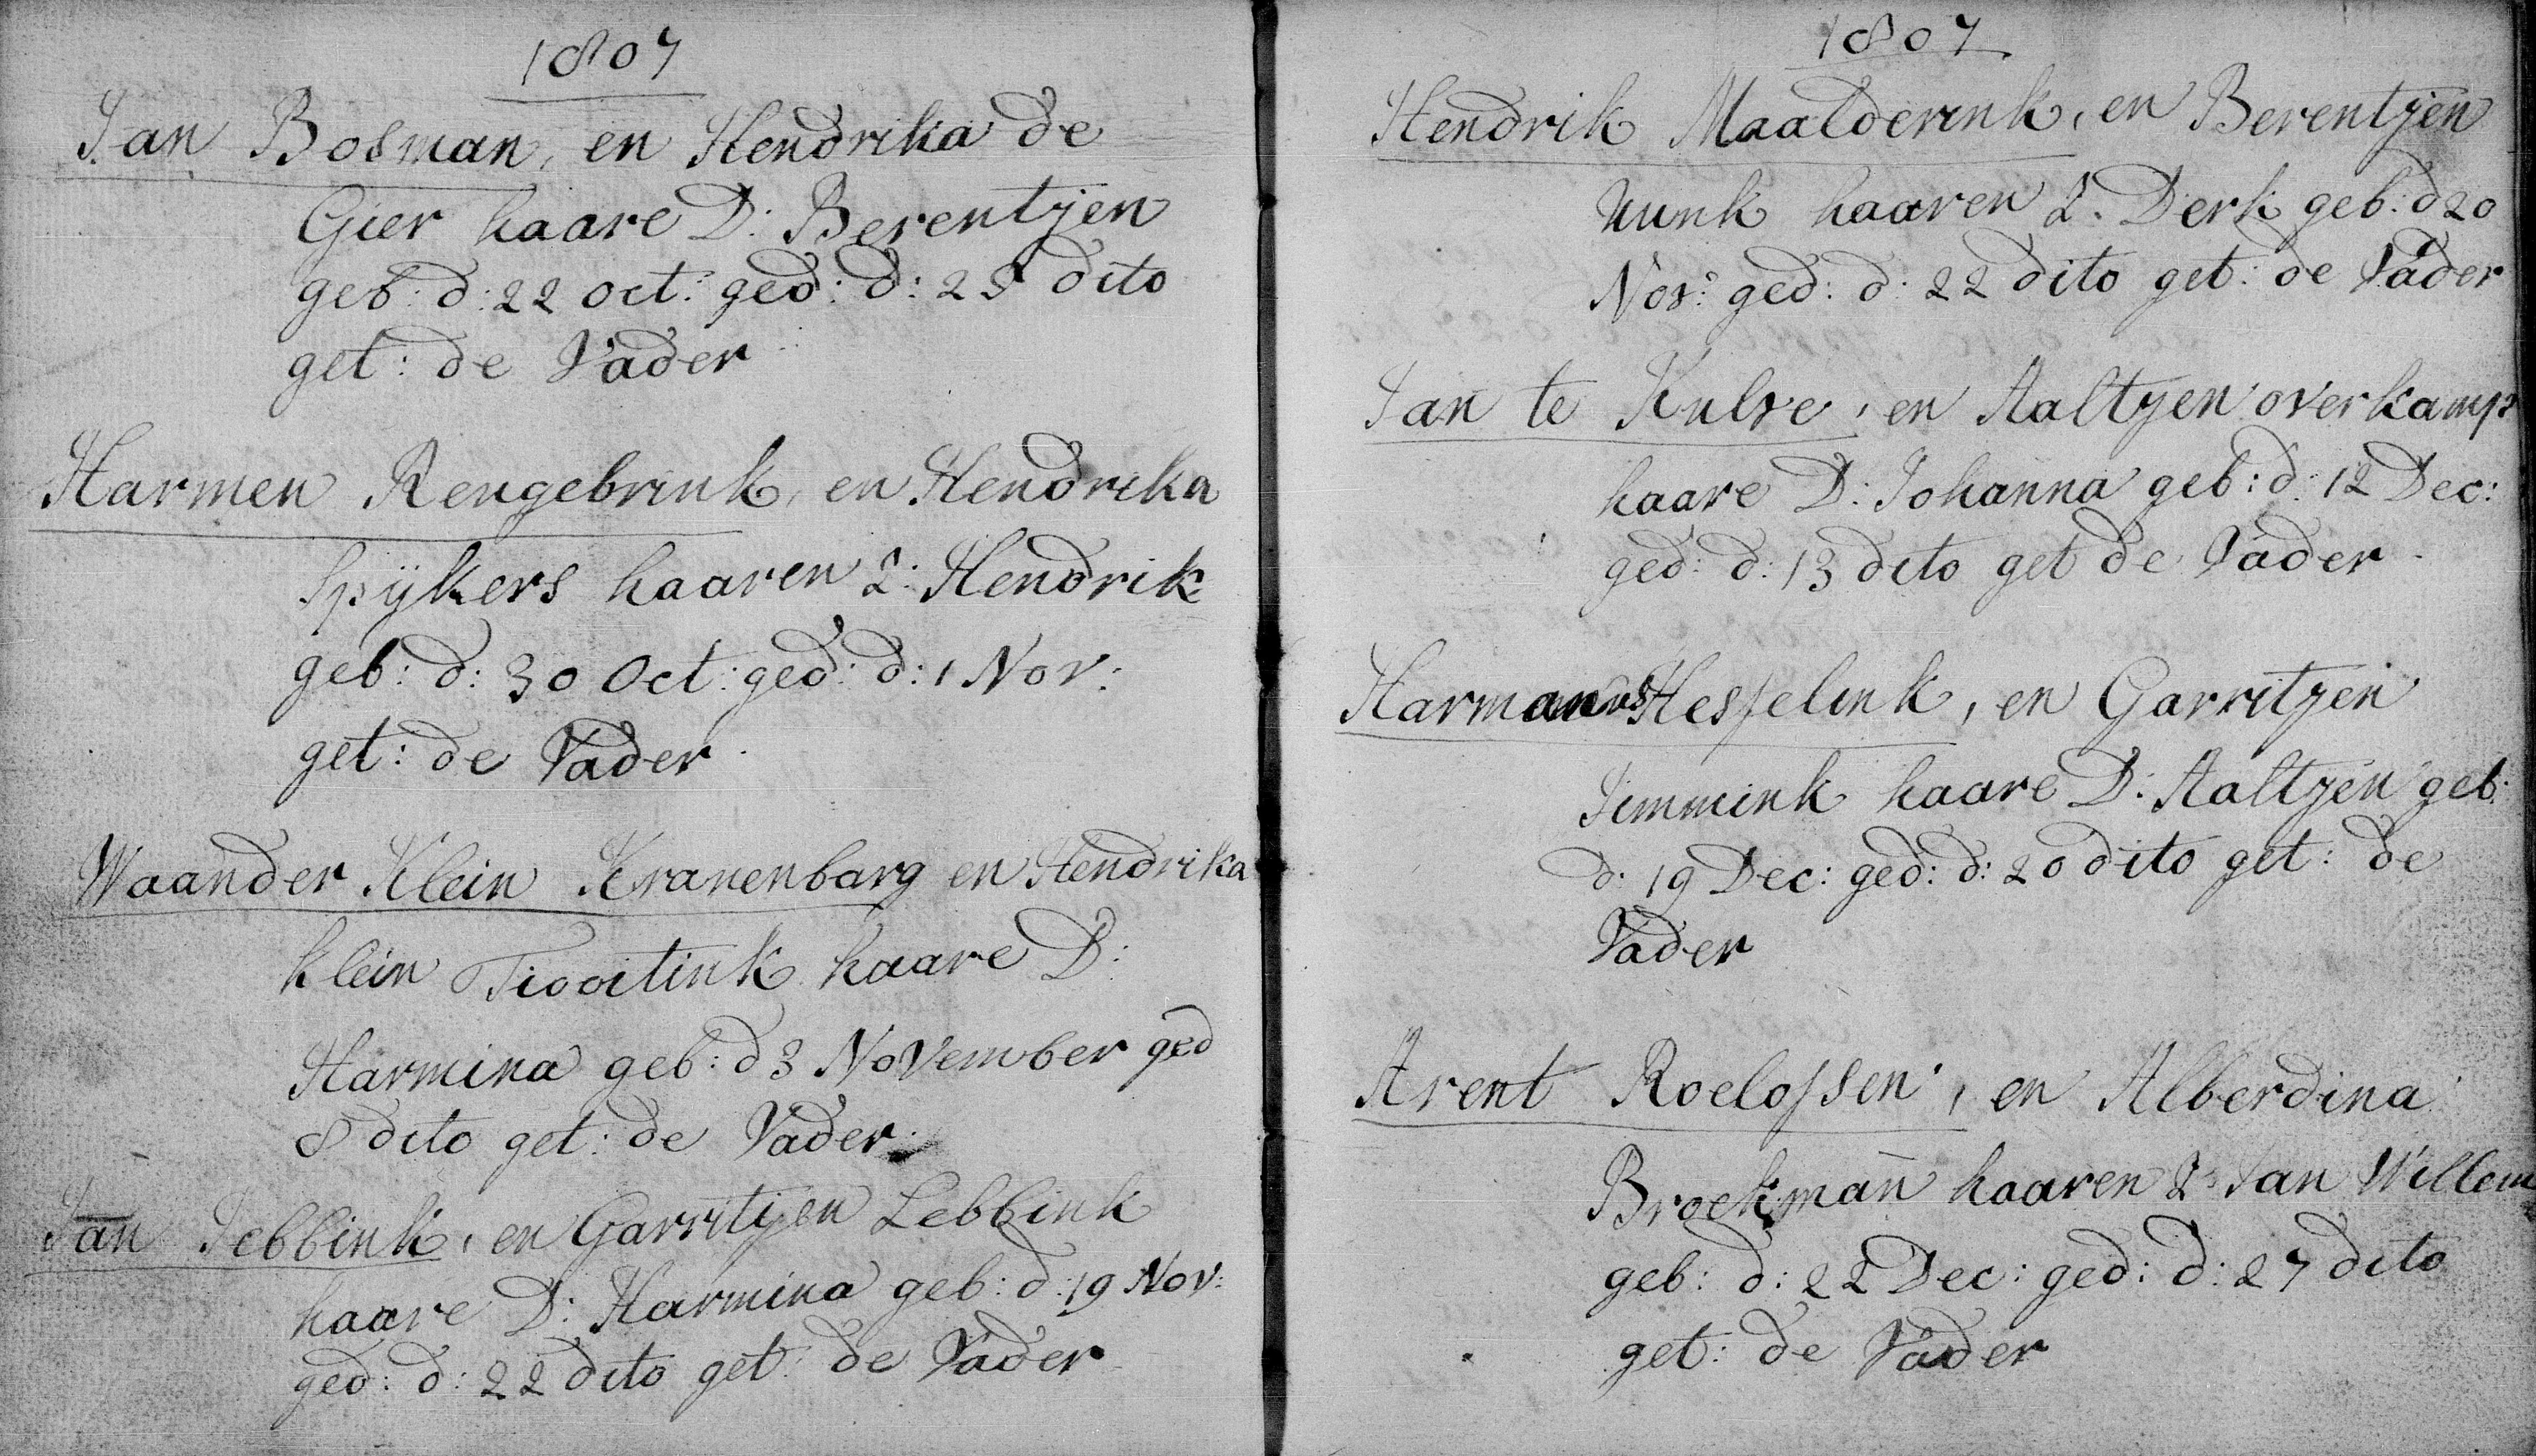 1807
Jan Bosman, en Hendrika de
Gier haare D: Berentjen
geb: d: 22 Oct: ged: d: 25 dito
get: de Vader
Harmen Rengebrink, en Hendrika
Spijkers haaren Z: Hendrik
geb: d: 30 Oct: ged: d: 1 Nov:
get: de Vader
Waander Klein Kranenbarg en Hendrika
klein haare D:
Harmina geb: d 3 November ged
8 dito get: de Vader
Jan Jebbink, en Garritjen Lebbink
haare D: Harmina geb: d: 19 Nov:
ged: d: 22 dito get: de Vader
1807
Hendrik Maalderink, en Berentjen
haaren Z. Derk geb: d 20
Nov: ged: d: 22 dito get: de Vader
Jan te Kulve, en Aaltjen overkamp
haare D: Johanna geb: d: 12 Dec:
ged: d: 13 dito get de Vader
Harmanus Hesselink, en Garritjen
Jimmink haare D: Aaltjen geb:
d: 19 Dec: ged: d: 20 dito get: de
Vader
Arent Roelofsen, en Alberdina
Broekman haaren Z: Jan Willem
geb: d: 22 Dec: ged: d: 27 dito
get: de Vader